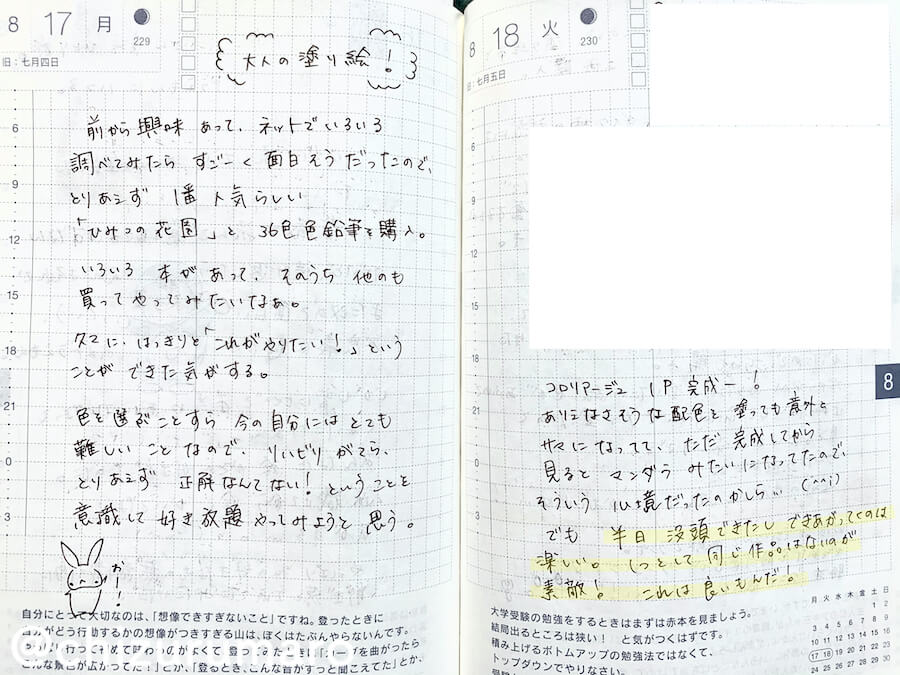 8 17 月
229
旧：七月四日
大人の塗り絵！
前から興味あって、ネットでいろいろ
調べてみたら すごーく面白そうだったので、
とりあえず 1番人気らしい
「ひみつの花園」と 36色色鉛筆を購入。
いろいろ 本があって、そのうち 他のも
買ってやってみたいなぁ。
久々に、はっきりと「これがやりたい！」という
ことが できた気がする。
色を選ぶことすら 今の自分には とても
難しい ことなので、リハビリ がてら、
とりあえず 正解なんてない！ ということを
意識して 好き放題 やってみようと 思う。
お！！
6
9
12
15
18
21
0
3
自分にとって大切なのは、「想像できすぎないこと」ですね。登ったときに
どう行動するかの想像がつきすぎる山は、ぼくはたぶんやらないんです。
8 18 火
230
旧：七月五日
6
9
12
15
18
21
0
3
8
コロリアージュ 1P 完成ー！
ありえなさそうな配色を 塗っても意外と
サマになってて、ただ 完成してから
見ると マンダラ みたいになってたので、
そういう 心境だったのかしら…(^^;)
でも 半日 没頭できたし できあがってくのは
楽しい。 1つとして 同じ作品はないのが
素敵！ これは良いもんだ！
大学受験の勉強をするときはまずは赤本を見ましょう。
結局出るところは狭い！ と気がつくはずです。
積み上げるボトムアップの勉強法ではなくて、
トップダウンでやりなさい。
月 火 水 木 金 土 日
1 2
3 4 5 6 7 8 9
10 11 12 13 14 15 16
17 18 19 20 21 22 23
24 25 26 27 28 29 30